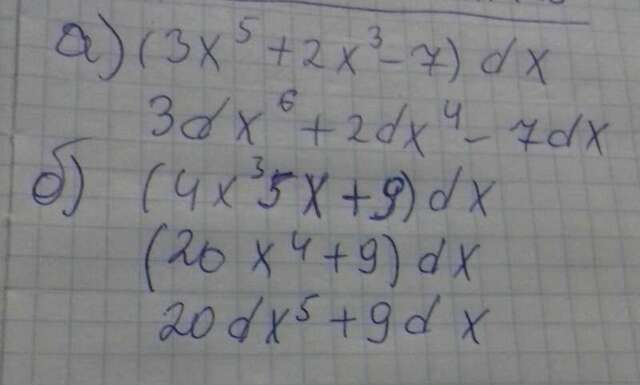 а) (3x⁵ + 2x³ - 7) dx
3dx⁶ + 2dx⁴ - 7dx
б) (4x³5x + 9) dx
(20x⁴ + 9) dx
20dx⁵ + 9dx